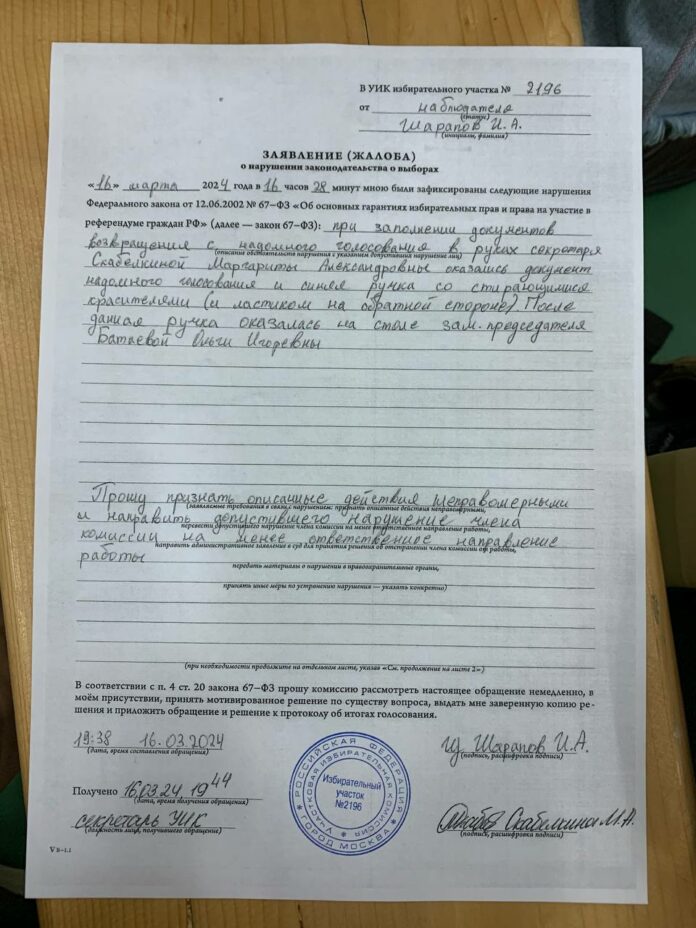 В УИК избирательного участка № 2196
от наблюдателя
(статус)
Шарапов И. А.
(инициалы, фамилия)
ЗАЯВЛЕНИЕ (ЖАЛОБА)
о нарушении законодательства о выборах
«16» марта 2024 года в 16 часов 28 минут мною были зафиксированы следующие нарушения
Федерального закона от 12.06.2002 № 67–ФЗ «Об основных гарантиях избирательных прав и права на участие в
референдуме граждан РФ» (далее — закон 67–ФЗ): при заполнении документов
возвращения с надомного голосования в руках секретаря
(описание обстоятельств нарушения с указанием допустивших нарушение лиц)
Скабелкиной Маргариты Александровны оказались документ
надомного голосования и синяя ручка со стирающимися
красителями (и ластиком на обратной стороне). После
данная ручка оказалась на столе зам. председателя
Батаевой Ольги Игоревны
Прошу признать описанные действия неправомерными
(заявляемые требования в связи с нарушением: признать описанные действия неправомерными,
и направить допустившего нарушение члена
перевести допустившего нарушение члена комиссии на менее ответственное направление работы,
комиссии на менее ответственное направление
направить административное заявление в суд для принятия решения об отстранении члена комиссии от работы,
работы
передать материалы о нарушении в правоохранительные органы,
принять иные меры по устранению нарушения — указать конкретно)
(при необходимости продолжите на отдельном листе, указав «См. продолжение на листе 2»)
В соответствии с п. 4 ст. 20 закона 67–ФЗ прошу комиссию рассмотреть настоящее обращение немедленно, в
моём присутствии, принять мотивированное решение по существу вопроса, выдать мне заверенную копию ре-
шения и приложить обращение и решение к протоколу об итогах голосования.
19:38 16.03.2024 Шарапов И.А.
(дата, время составления обращения) (подпись, расшифровка подписи)
Получено 16.03.24 19 44
(дата, время получения обращения)
секретарь УИК Скабелкина М.А.
(должность лица, получившего обращение) (подпись, расшифровка подписи)
РОССИЙСКАЯ ФЕДЕРАЦИЯ
УЧАСТКОВАЯ ИЗБИРАТЕЛЬНАЯ КОМИССИЯ
ГОРОД МОСКВА
Избирательный
участок
№2196
V B–1.1